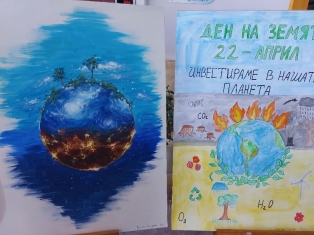 ДЕН НА ЗЕМЯТ
22 - АПРИЛ
ИНВЕСТИРАМЕ В НАШАТ
ПЛАНЕТА
CO₂
H₂O
O₃